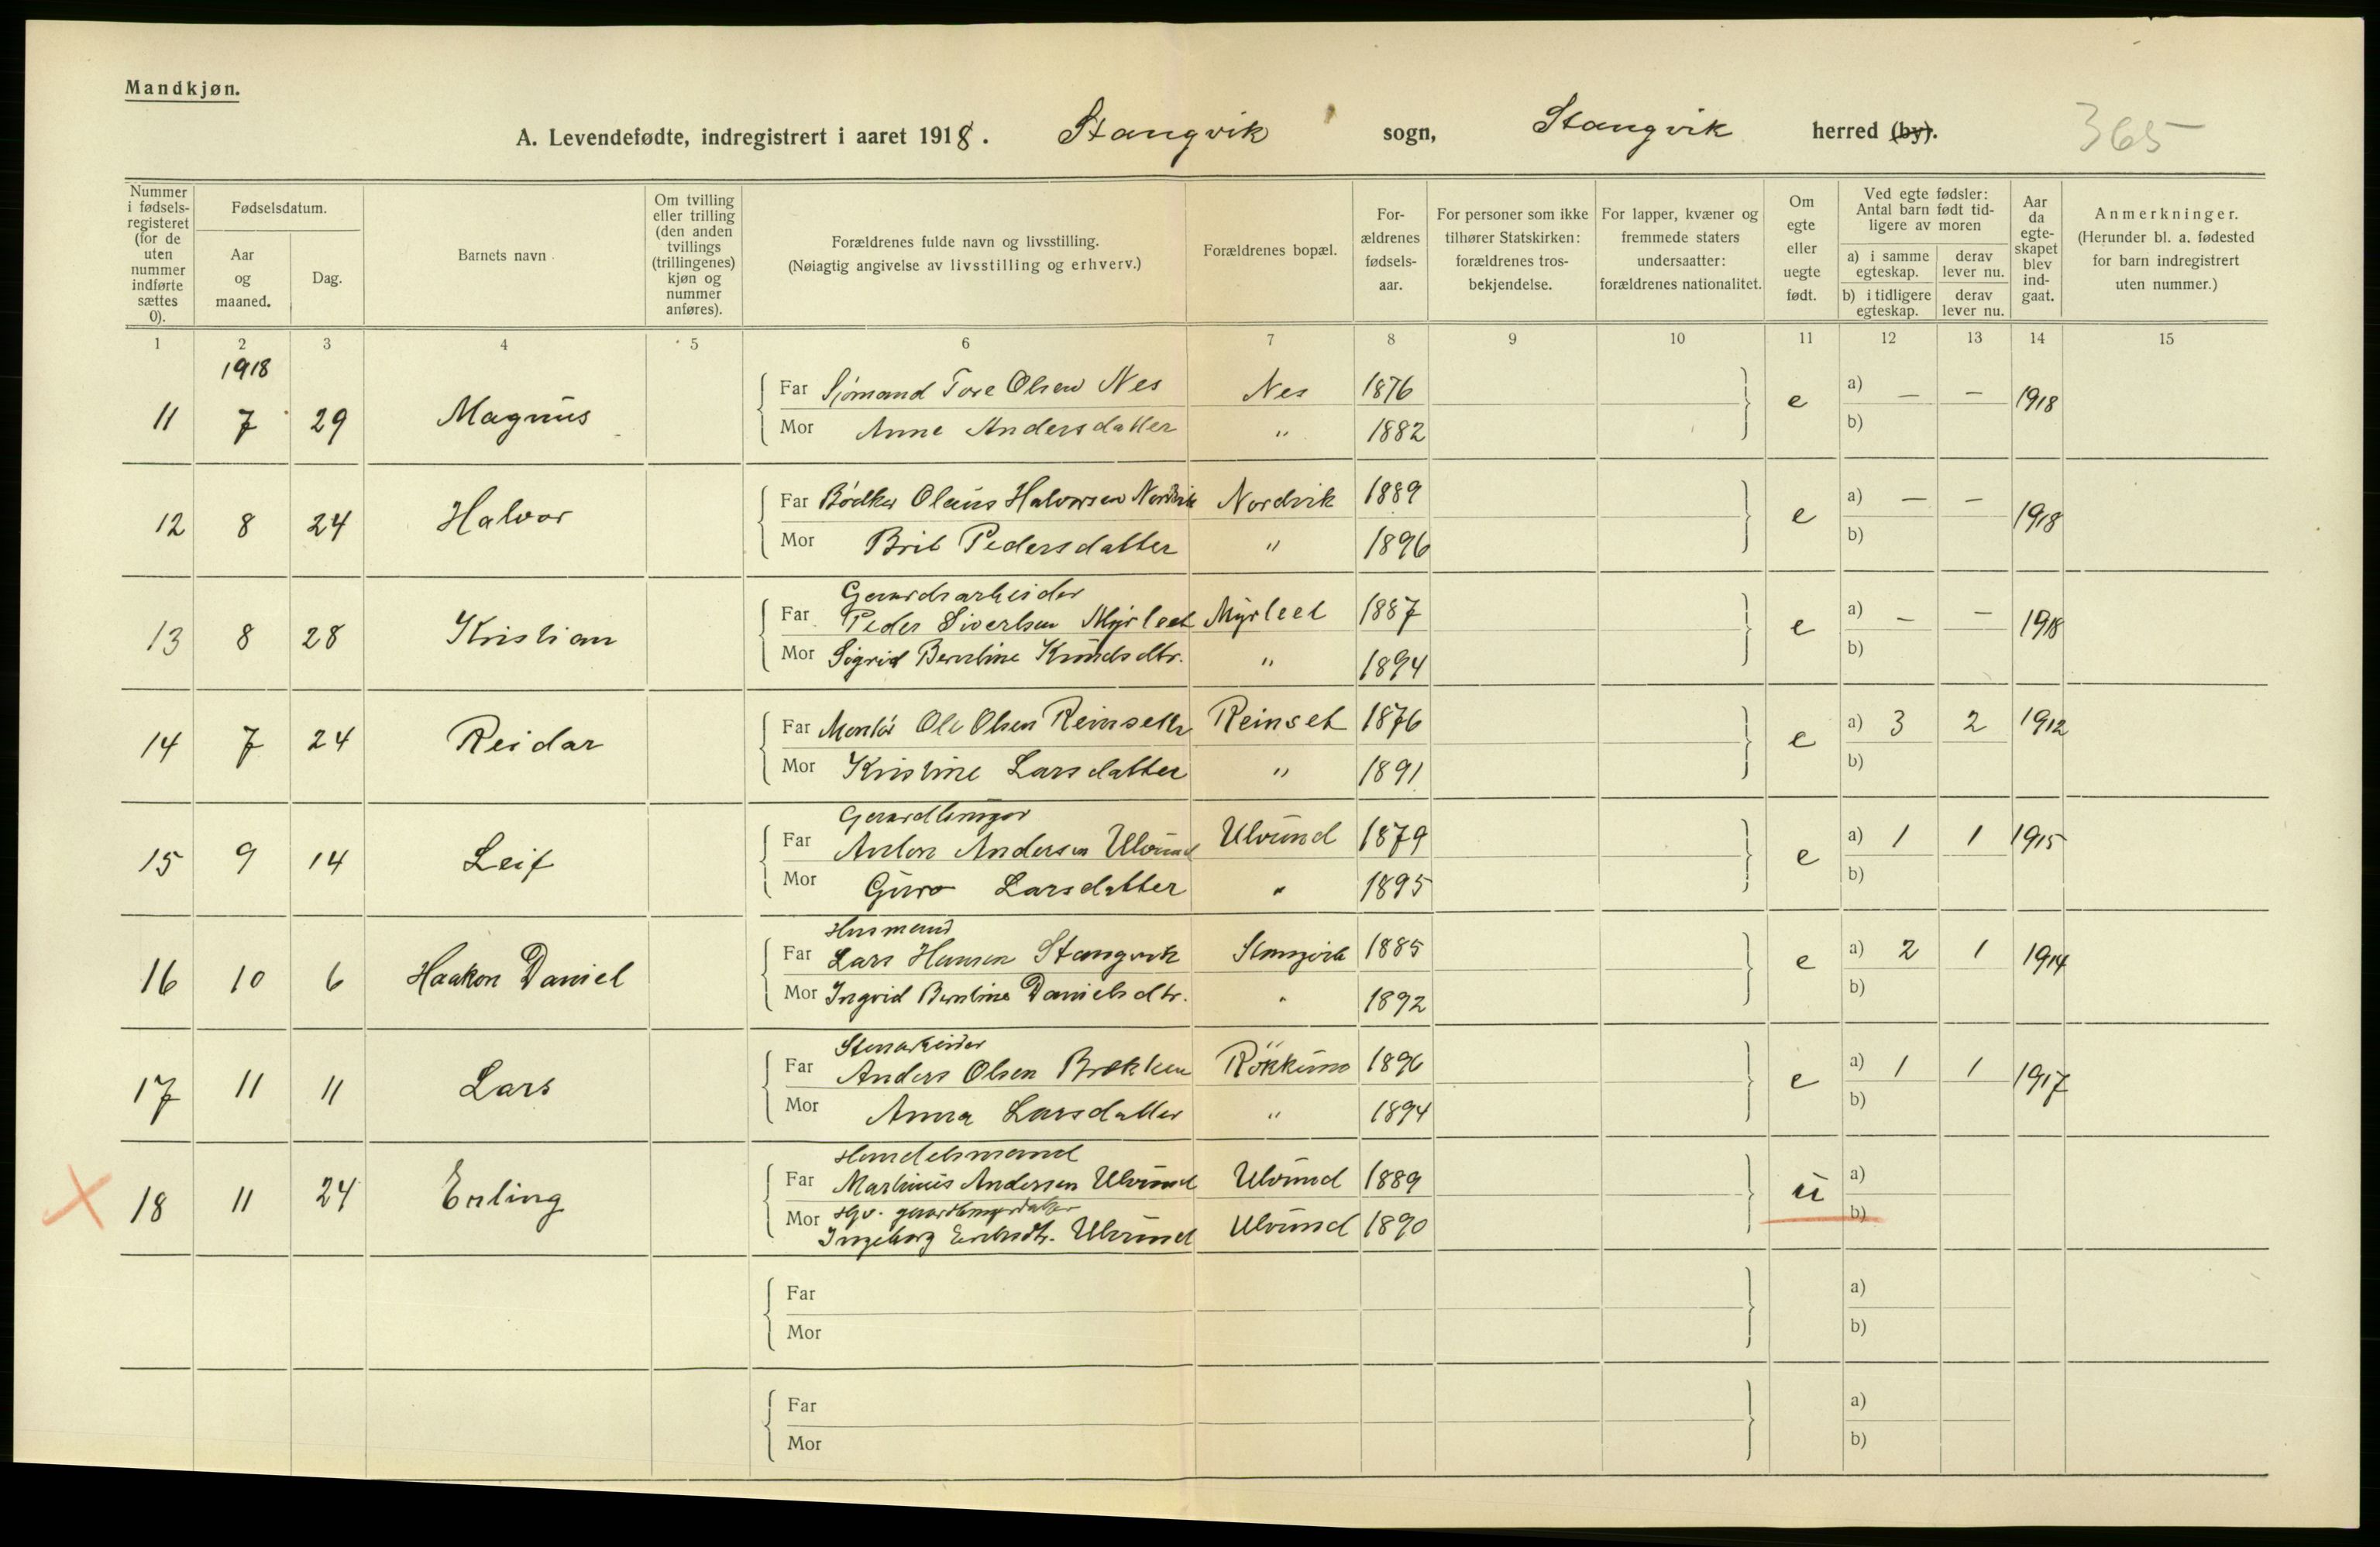 Mandkjøn.
A. Levendefødte, indregistrert i aaret 1918. Stangvik sogn, Stangvik herred (by). 365
Nummer i fødsels-registeret (for de uten nummer indførte sættes 0).
Fødselsdatum.
Aar og maaned.
Dag.
Barnets navn
Om tvilling eller trilling (den anden tvillings (trillingenes) kjøn og nummer anføres).
Forældrenes fulde navn og livsstilling.
(Nøiagtig angivelse av livsstilling og erhverv.)
Forældrenes bopæl.
For-ældrenes fødsels-aar.
For personer som ikke tilhører Statskirken: forældrenes tros-bekjendelse.
For lapper, kvæner og fremmede staters undersaatter: forældrenes nationalitet.
Om egte eller uegte født.
Ved egte fødsler: Antal barn født tid-ligere av moren
a) i samme egteskap. derav lever nu.
b) i tidligere egteskap. derav lever nu.
Aar da egte-skapet blev ind-gaat.
Anmerkninger.
(Herunder bl. a. fødested for barn indregistrert uten nummer.)
1 2 3 4 5 6 7 8 9 10 11 12 13 14 15
1918
11 7 29 Magnus Far Sjømand Tore Olsen Nes Nes 1876 e a) — — 1918
Mor Anne Andersdatter " 1882 b)
12 8 24 Halvor Far Bødker Olaus Halvorsen Nordvik Nordvik 1889 e a) — — 1918
Mor Brit Pedersdatter " 1896 b)
Gaardsarbeider
13 8 28 Kristian Far Peder Sivertsen Myrleet Myrleet 1887 e a) — — 1918
Mor Sigrid Berntine Knudsdtr. " 1894 b)
14 7 24 Reidar Far Montør Ole Olsen Reinseth Reinset 1876 e a) 3 2 1912
Mor Kristine Larsdatter " 1891 b)
15 9 14 Leif Far Anton Andersen Ulvund Ulvund 1879 e a) 1 1 1915
Mor Guro Larsdatter " 1895 b)
Husmand
16 10 6 Haakon Daniel Far Lars Hansen Stangvik Stangvik 1885 e a) 2 1 1914
Mor Ingrid Berntine Danielsdtr. " 1892 b)
Stenarbeider
17 11 11 Lars Far Anders Olsen Brekken Røkkum 1896 e a) 1 1 1917
Mor Anna Larsdatter " 1894 b)
Handelsmand
18 11 24 Erling Far Martinus Andersen Ulvund Ulvund 1889 u a)
Mor Ingeborg Ulvund Ulvund 1890 b)
Far a)
Mor b)
Far a)
Mor b)